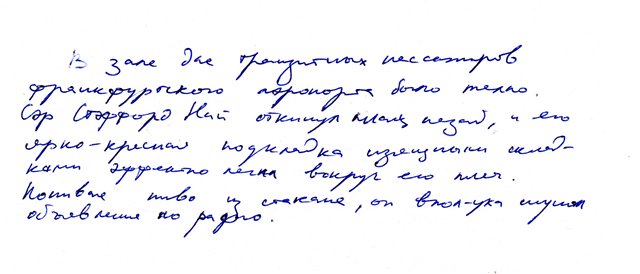 В зале для транзитных пассажиров
франкфуртского аэропорта было тепло.
Сэр Стаффорд Най откинул плащ назад, и его
ярко-красная подкладка изящными склад-
ками эффектно легла вокруг его плеч.
Попивая пиво из стакана, он впол-уха слушал
объявления по радио.